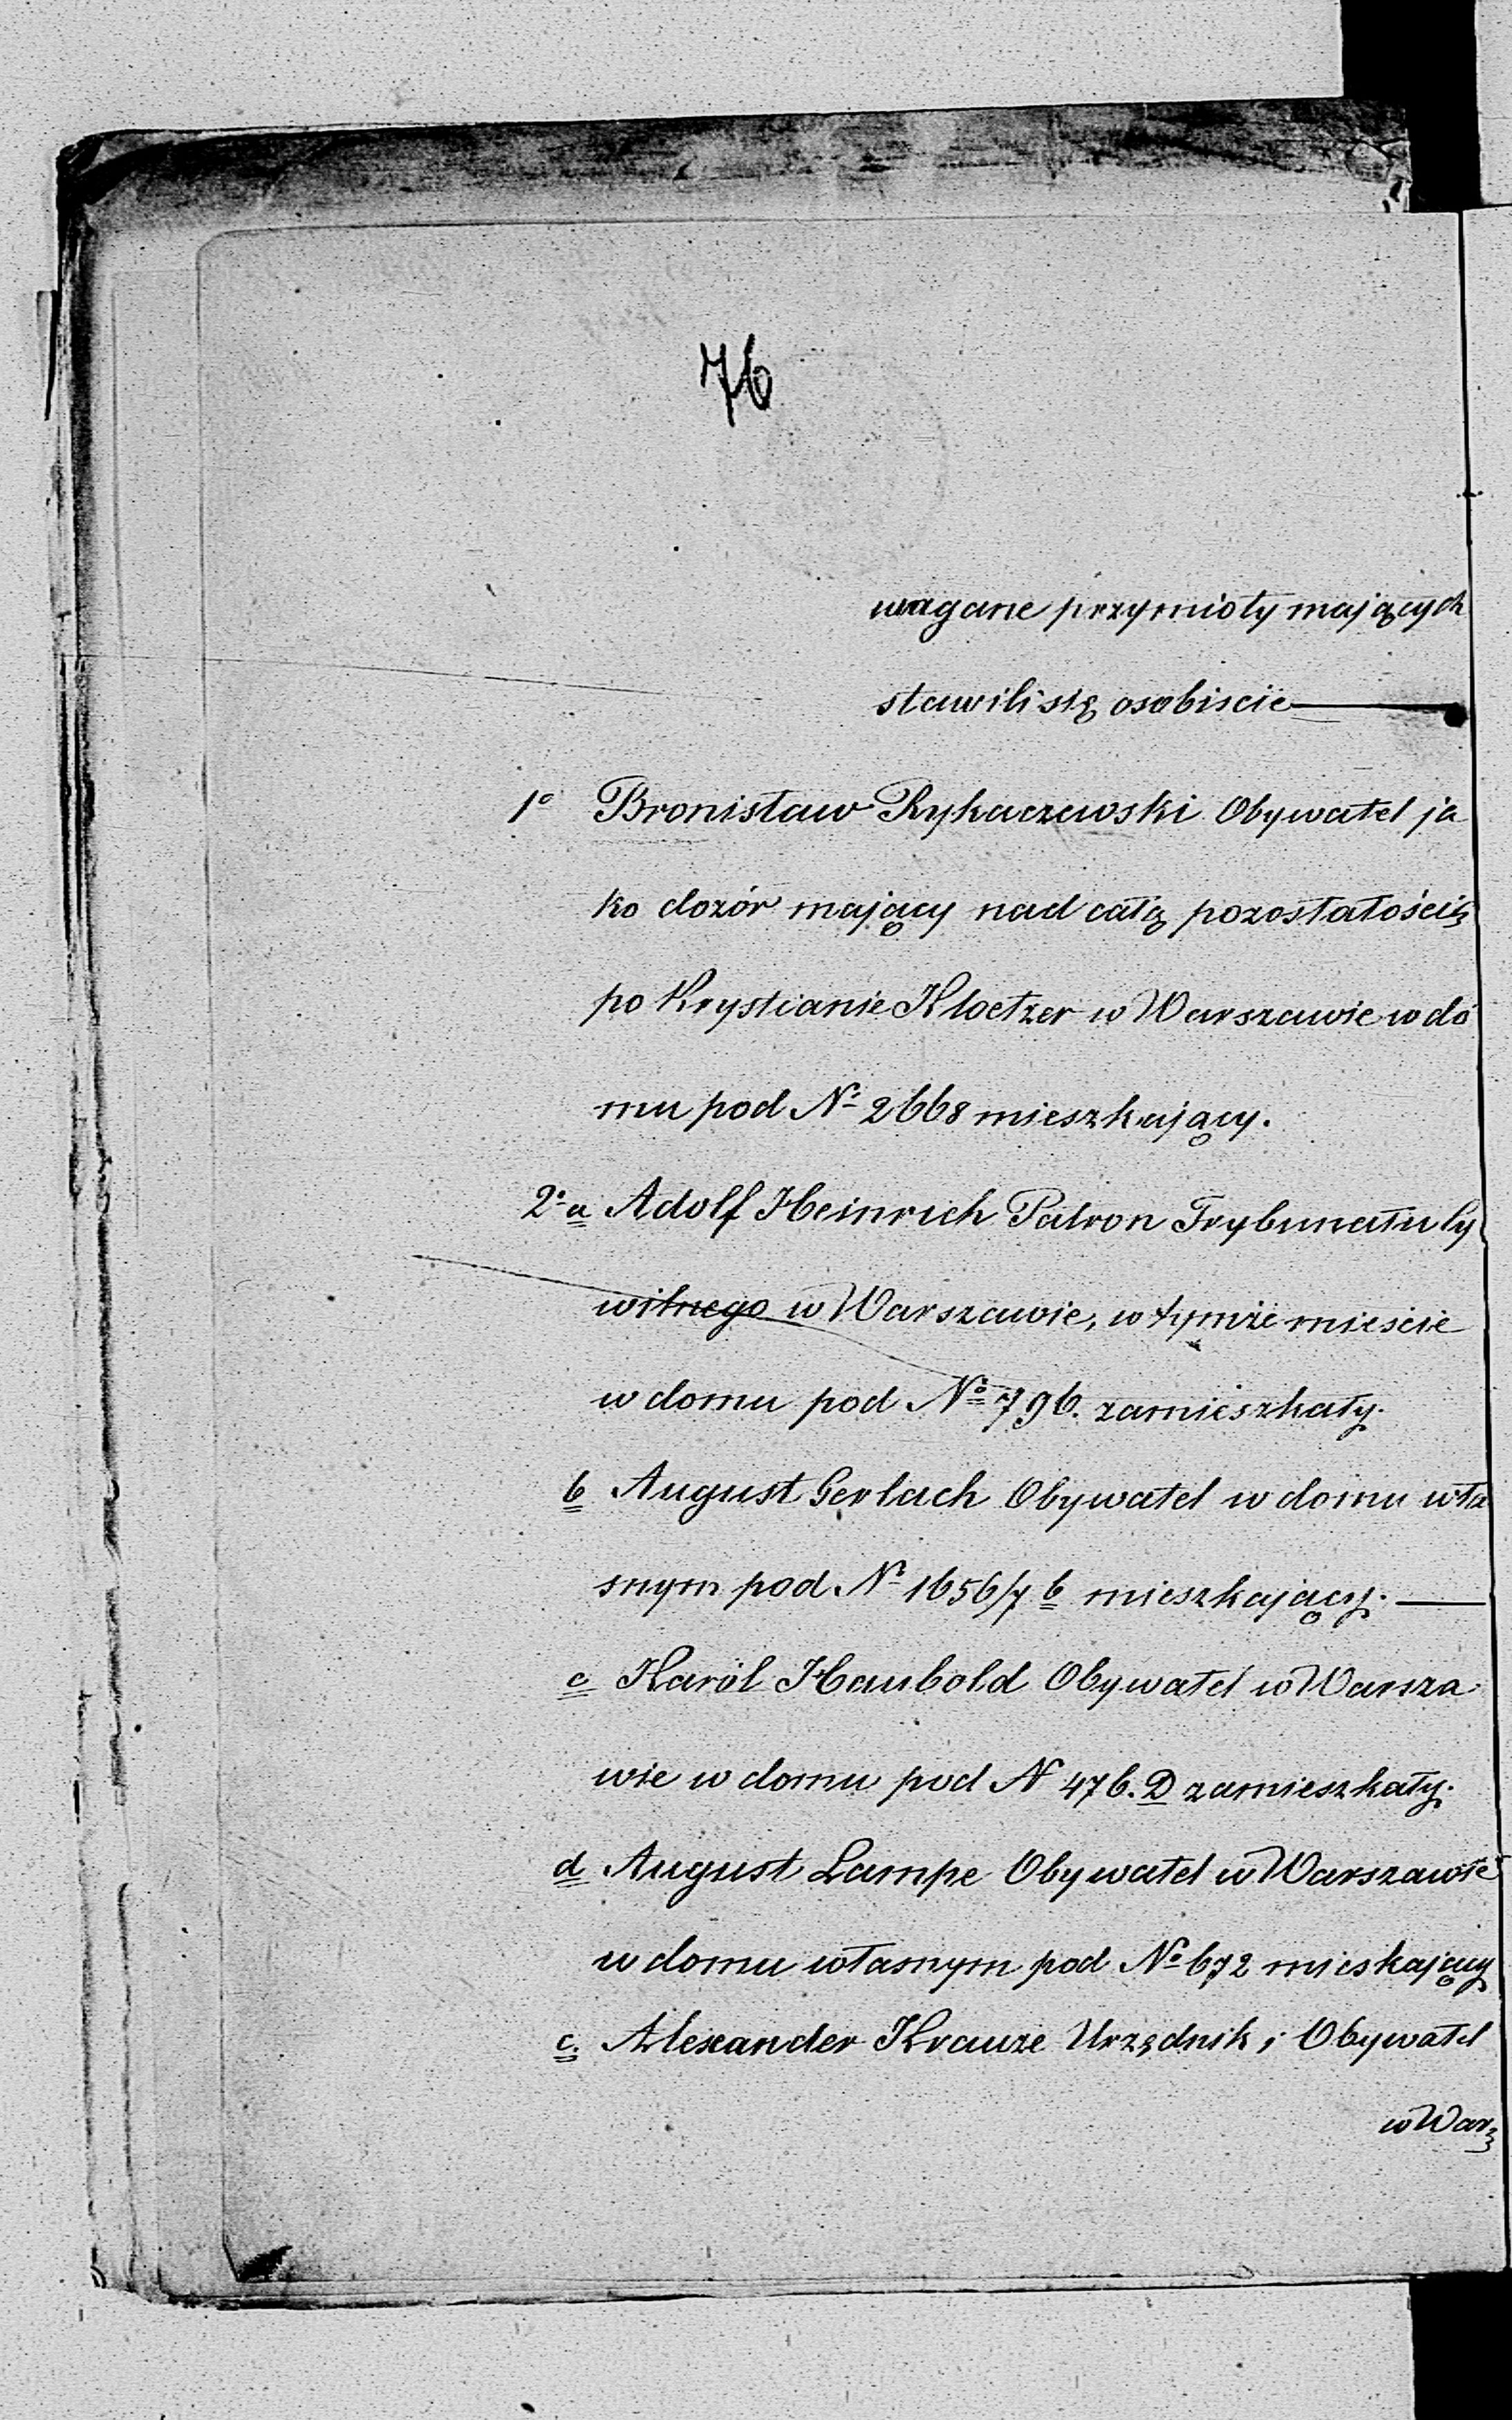 76
magane przymioty mających
stawili się osobiscie
1° Bronisław Rykaczewski Obywatel ja
ko dozór mający nad całą pozostałością
po Krystianie Kloetzer w Warszawie w do
mu pod Nº 2668 mieszkający.
2º a Adolf Heinrich Patron Trybunału Cy
wilnego w Warszawie, w tymże mieście
w domu pod Nº 796. zamieszkały.
b August Gerlach Obywatel w domu wła
snym pod Nº 1656/7 b mieszkający.
c Karól Haubold Obywatel w Warsza
wie w domu pod N 476. D zamieszkały.
d August Lampe Obywatel w Warszawie
w domu własnym pod Nº 672 mieskający
e. Alexander Krauze Urzędnik i Obywatel
w War